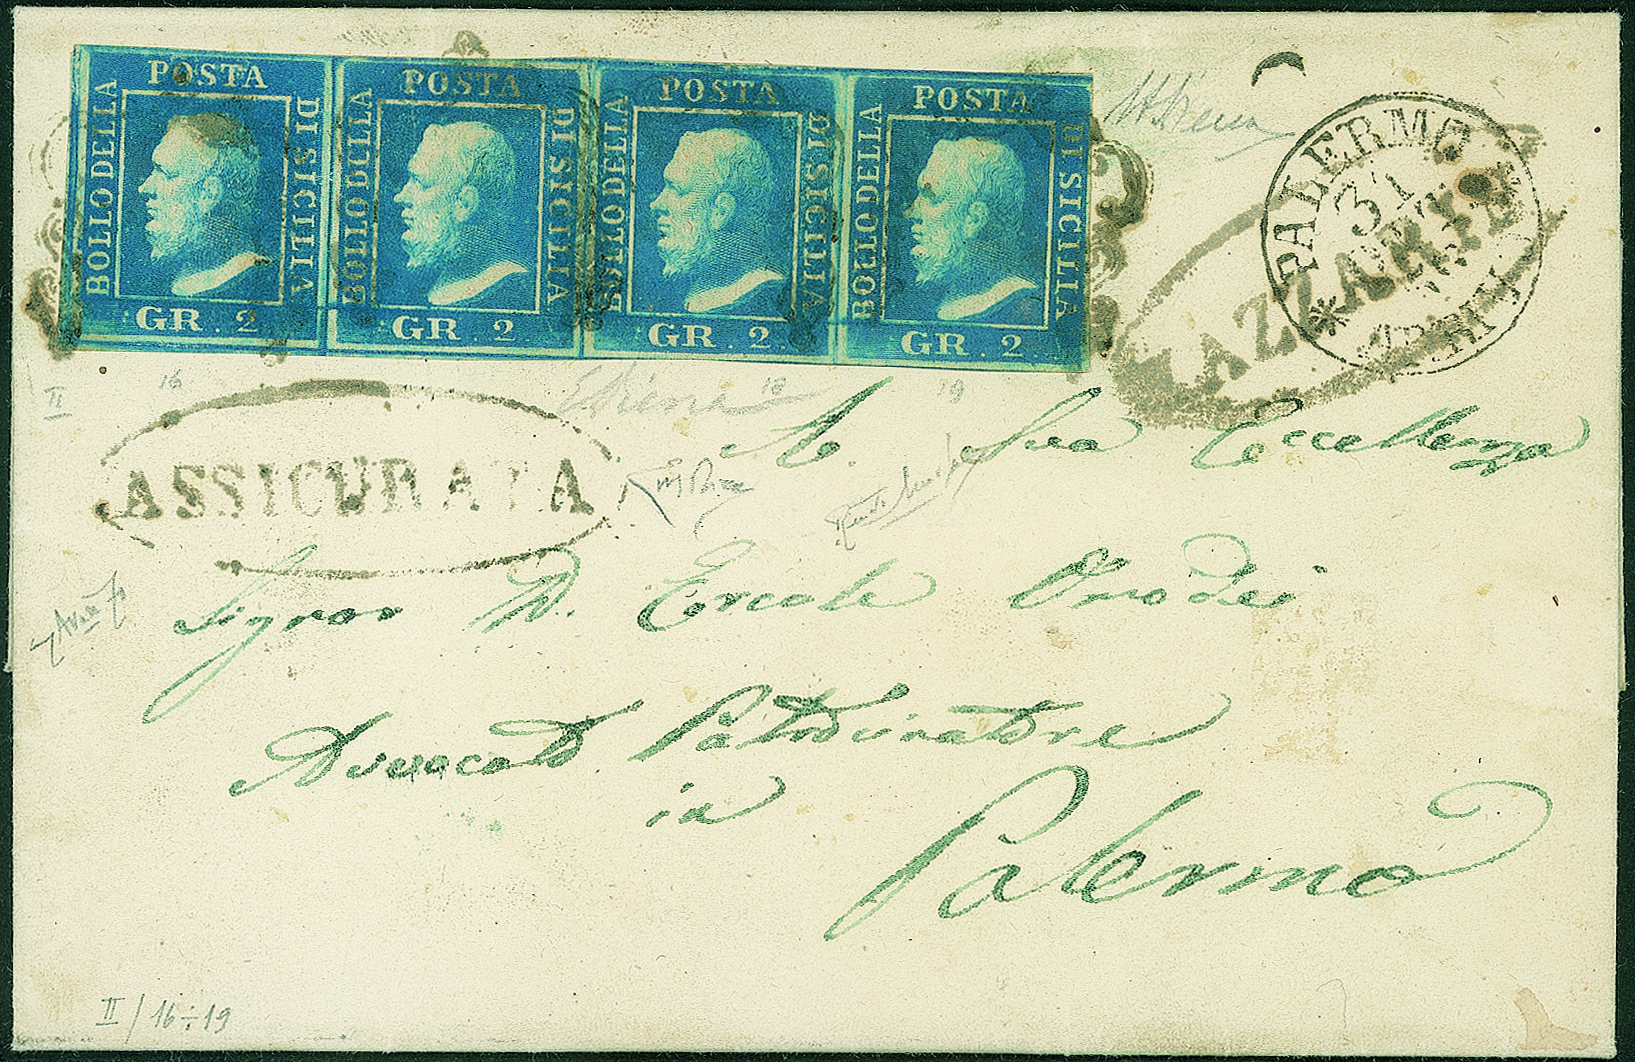 POSTA
BOLLO DELLA
DI SICILIA
GR. 2
POSTA
BOLLO DELLA
DI SICILIA
GR. 2
POSTA
BOLLO DELLA
DI SICILIA
GR. 2.
POSTA
BOLLO DELLA
DI SICILIA
GR. 2
PALERMO
31
ARRIVO
II 16 18 19
ASSICURATA
A Sua Eccellenza
Signor D. Ercole Onodei
Avvocato Patrocinatore
in
Palermo
II / 16÷19